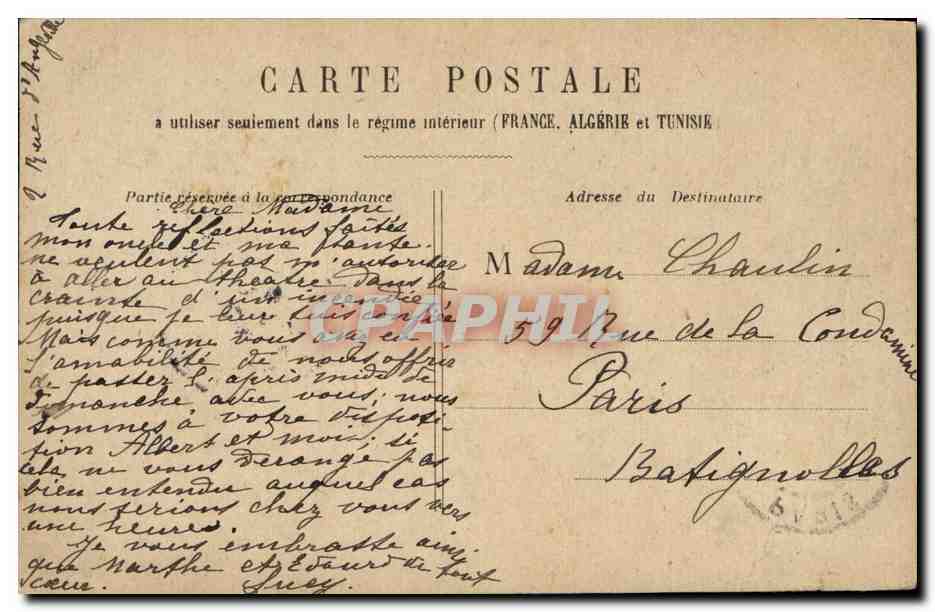 2 Rue d'Angoulême
CARTE POSTALE
a utiliser seulement dans le régime intérieur (FRANCE, ALGÉRIE et TUNISIE)
Partie réservée à la correspondance
Adresse du Destinataire
Chère Madame
Toute reflections faîtes
mon oncle et ma tante
ne veulent pas m'autoriser
à aller au théatre dans la
crainte d'un incendie
puisque je leur suis confiée
Mais comme vous avez eu
l'amabilité de nous offrir
de passer l'après midi de
dimanche avec vous; nous
sommes à votre disposi-
tion Albert et moi; si
cela ne vous dérange pas
bien entendu auquel cas
nous serions chez vous vers
une heure.
Je vous embrasse ainsi
que Marthe et Edouard de tout
cœur. Lucy.
Madame Chaulin
59 Rue de la Condamine
Paris
Batignolles
CPAPHIL
PARIS